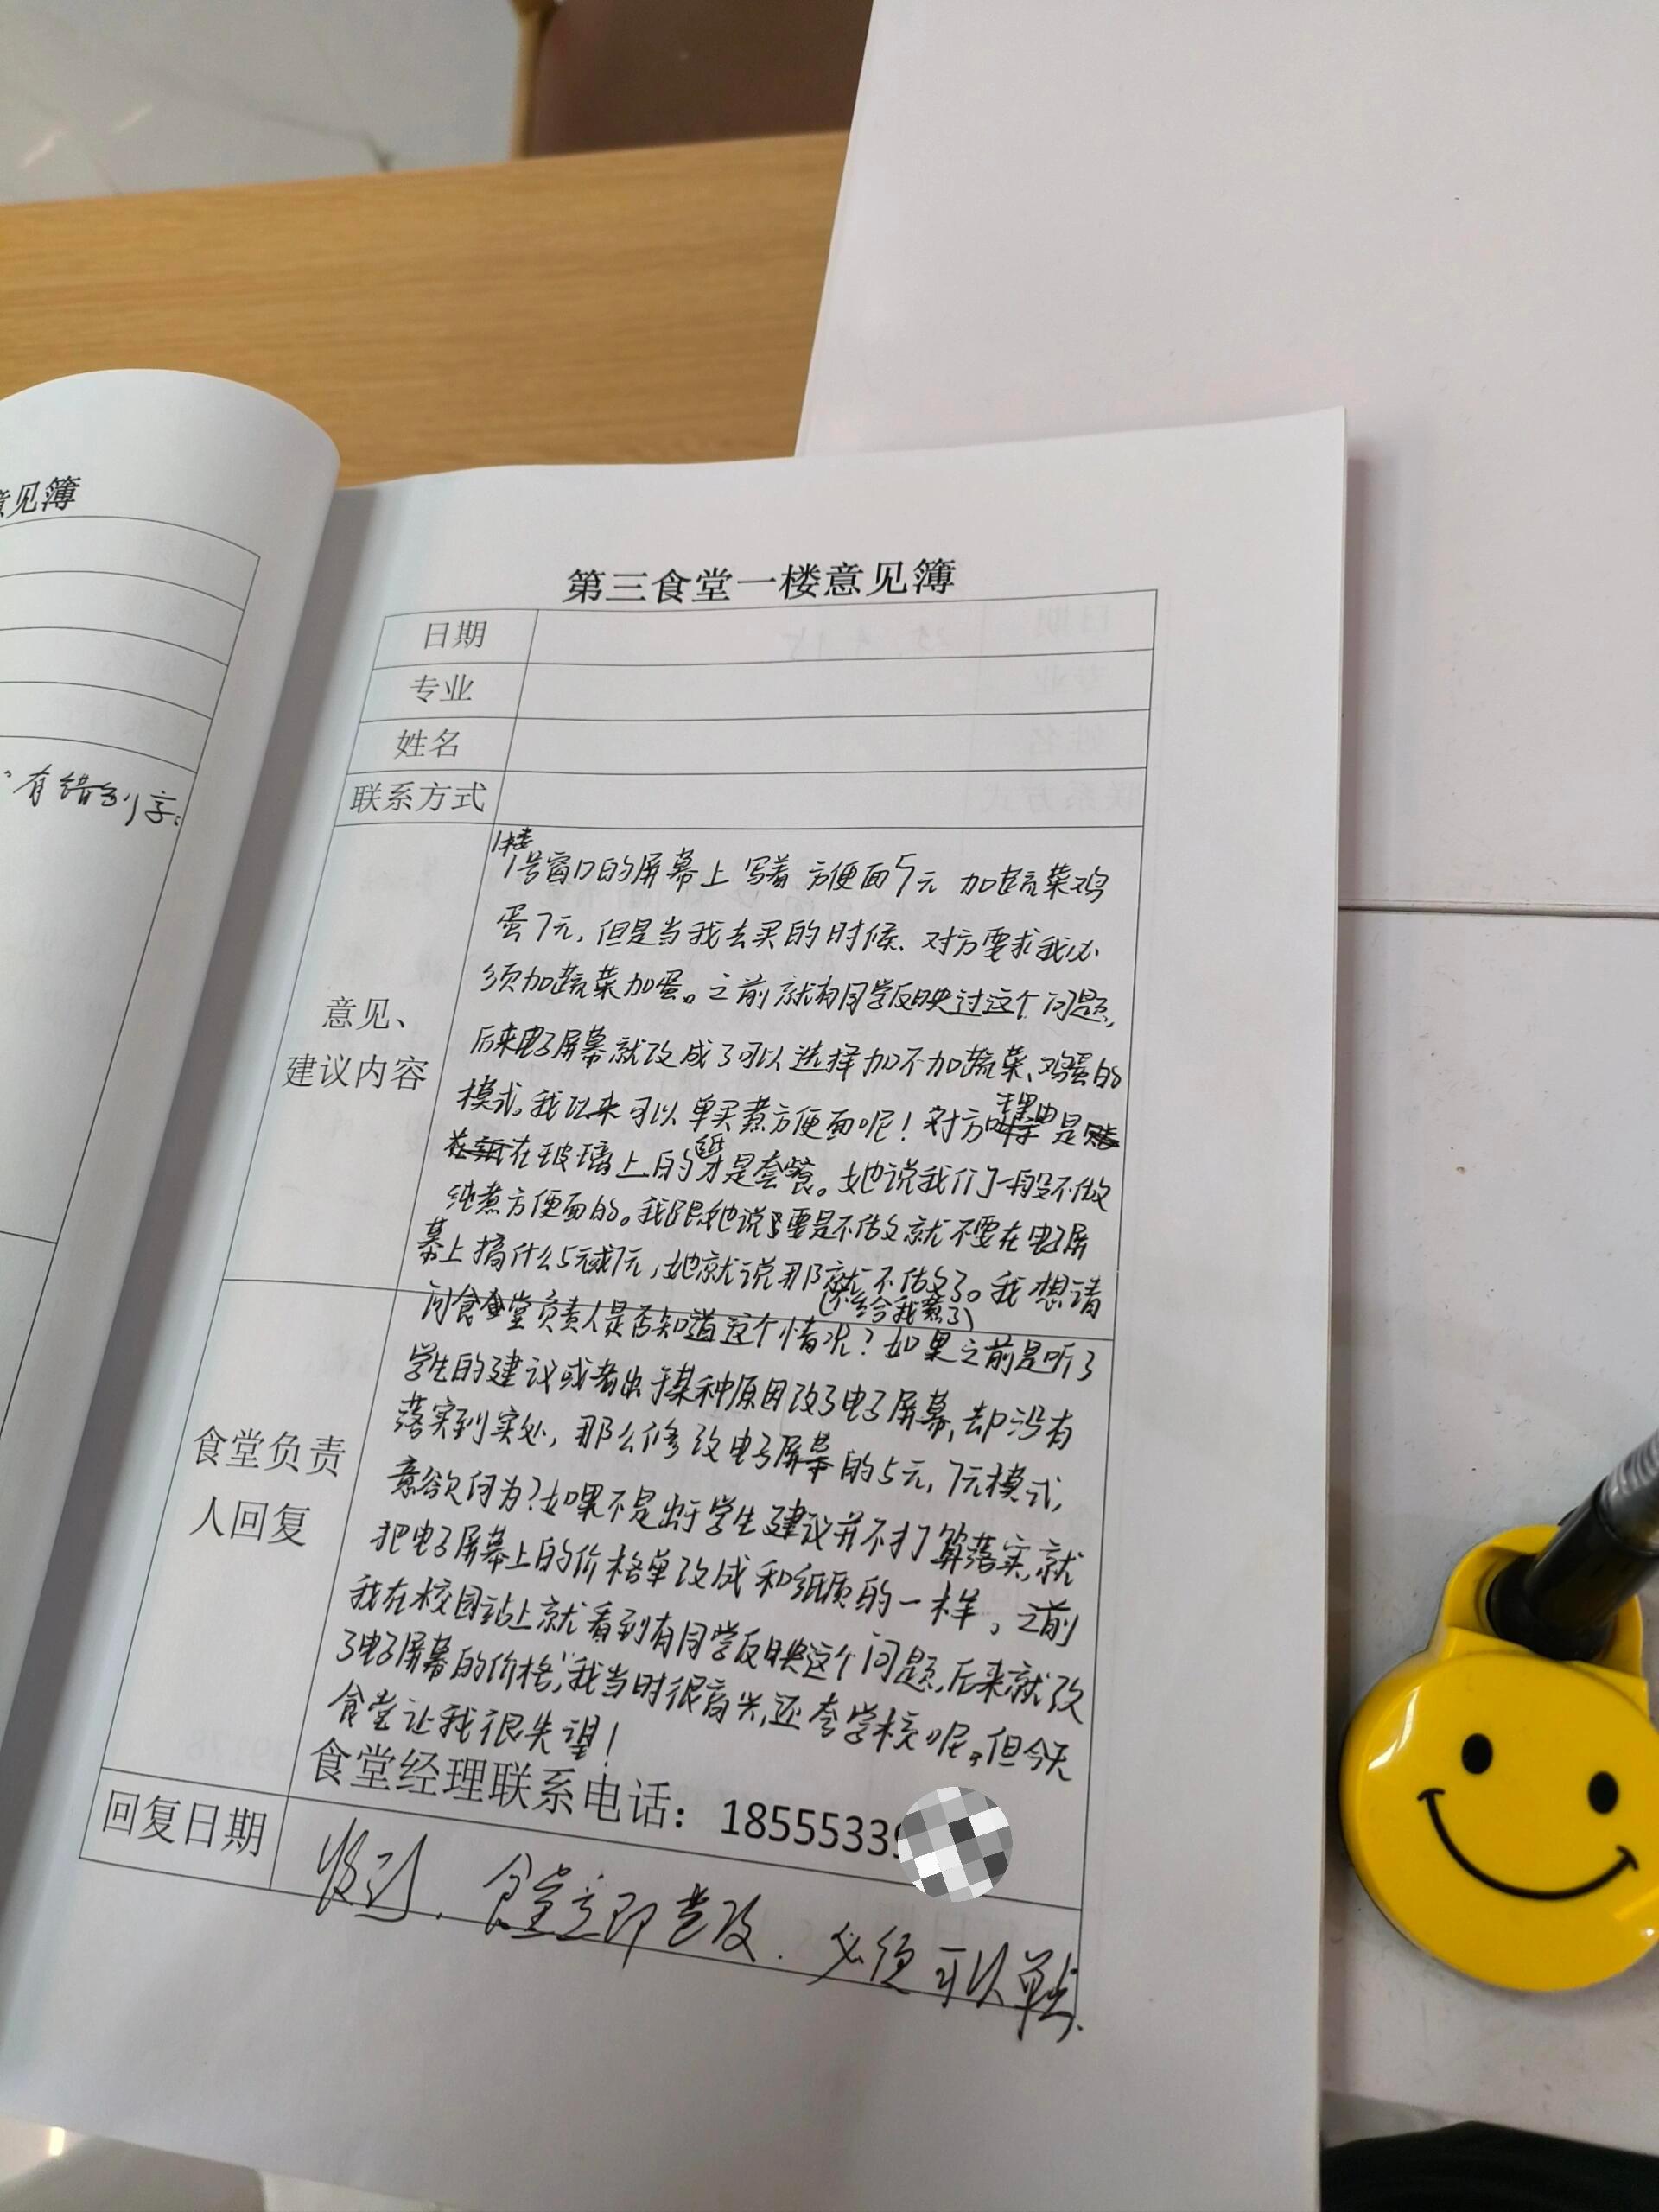 意见簿
有错别字。
第三食堂一楼意见簿
日期
专业
姓名
联系方式
意见、
建议内容
1楼
1号窗口的屏幕上写着 方便面5元 加蔬菜鸡
蛋7元，但是当我去买的时候、对方要求我必
须加蔬菜加蛋。之前就有同学反映过这个问题，
后来电子屏幕就改成了可以选择加不加蔬菜、鸡蛋的
模式。我以来可以单买煮方便面呢！对方理由是
在玻璃上的纸才是套餐。她说我们一般不做
纯煮方便面的。我跟她说要是不做就不要在电子屏
幕上搞什么5元或7元，她就说那就不做了。我想请
(不给我煮了)
问食堂负责人是否知道这个情况？如果之前是听了
学生的建议或者出于某种原因改了电子屏幕，却没有
落实到实处，那么修改电子屏幕的5元，7元模式，
意欲何为？如果不是出于学生建议并不打算落实，就
把电子屏幕上的价格单改成和纸质的一样。之前
我在校园站上就看到有同学反映这个问题，后来就改
了电子屏幕的价格，我当时很高兴，还夸学校呢。但今天
食堂让我很失望！
食堂负责
人回复
食堂经理联系电话：18555339
回复日期
收到. 食堂立即整改. 必须可以单点.